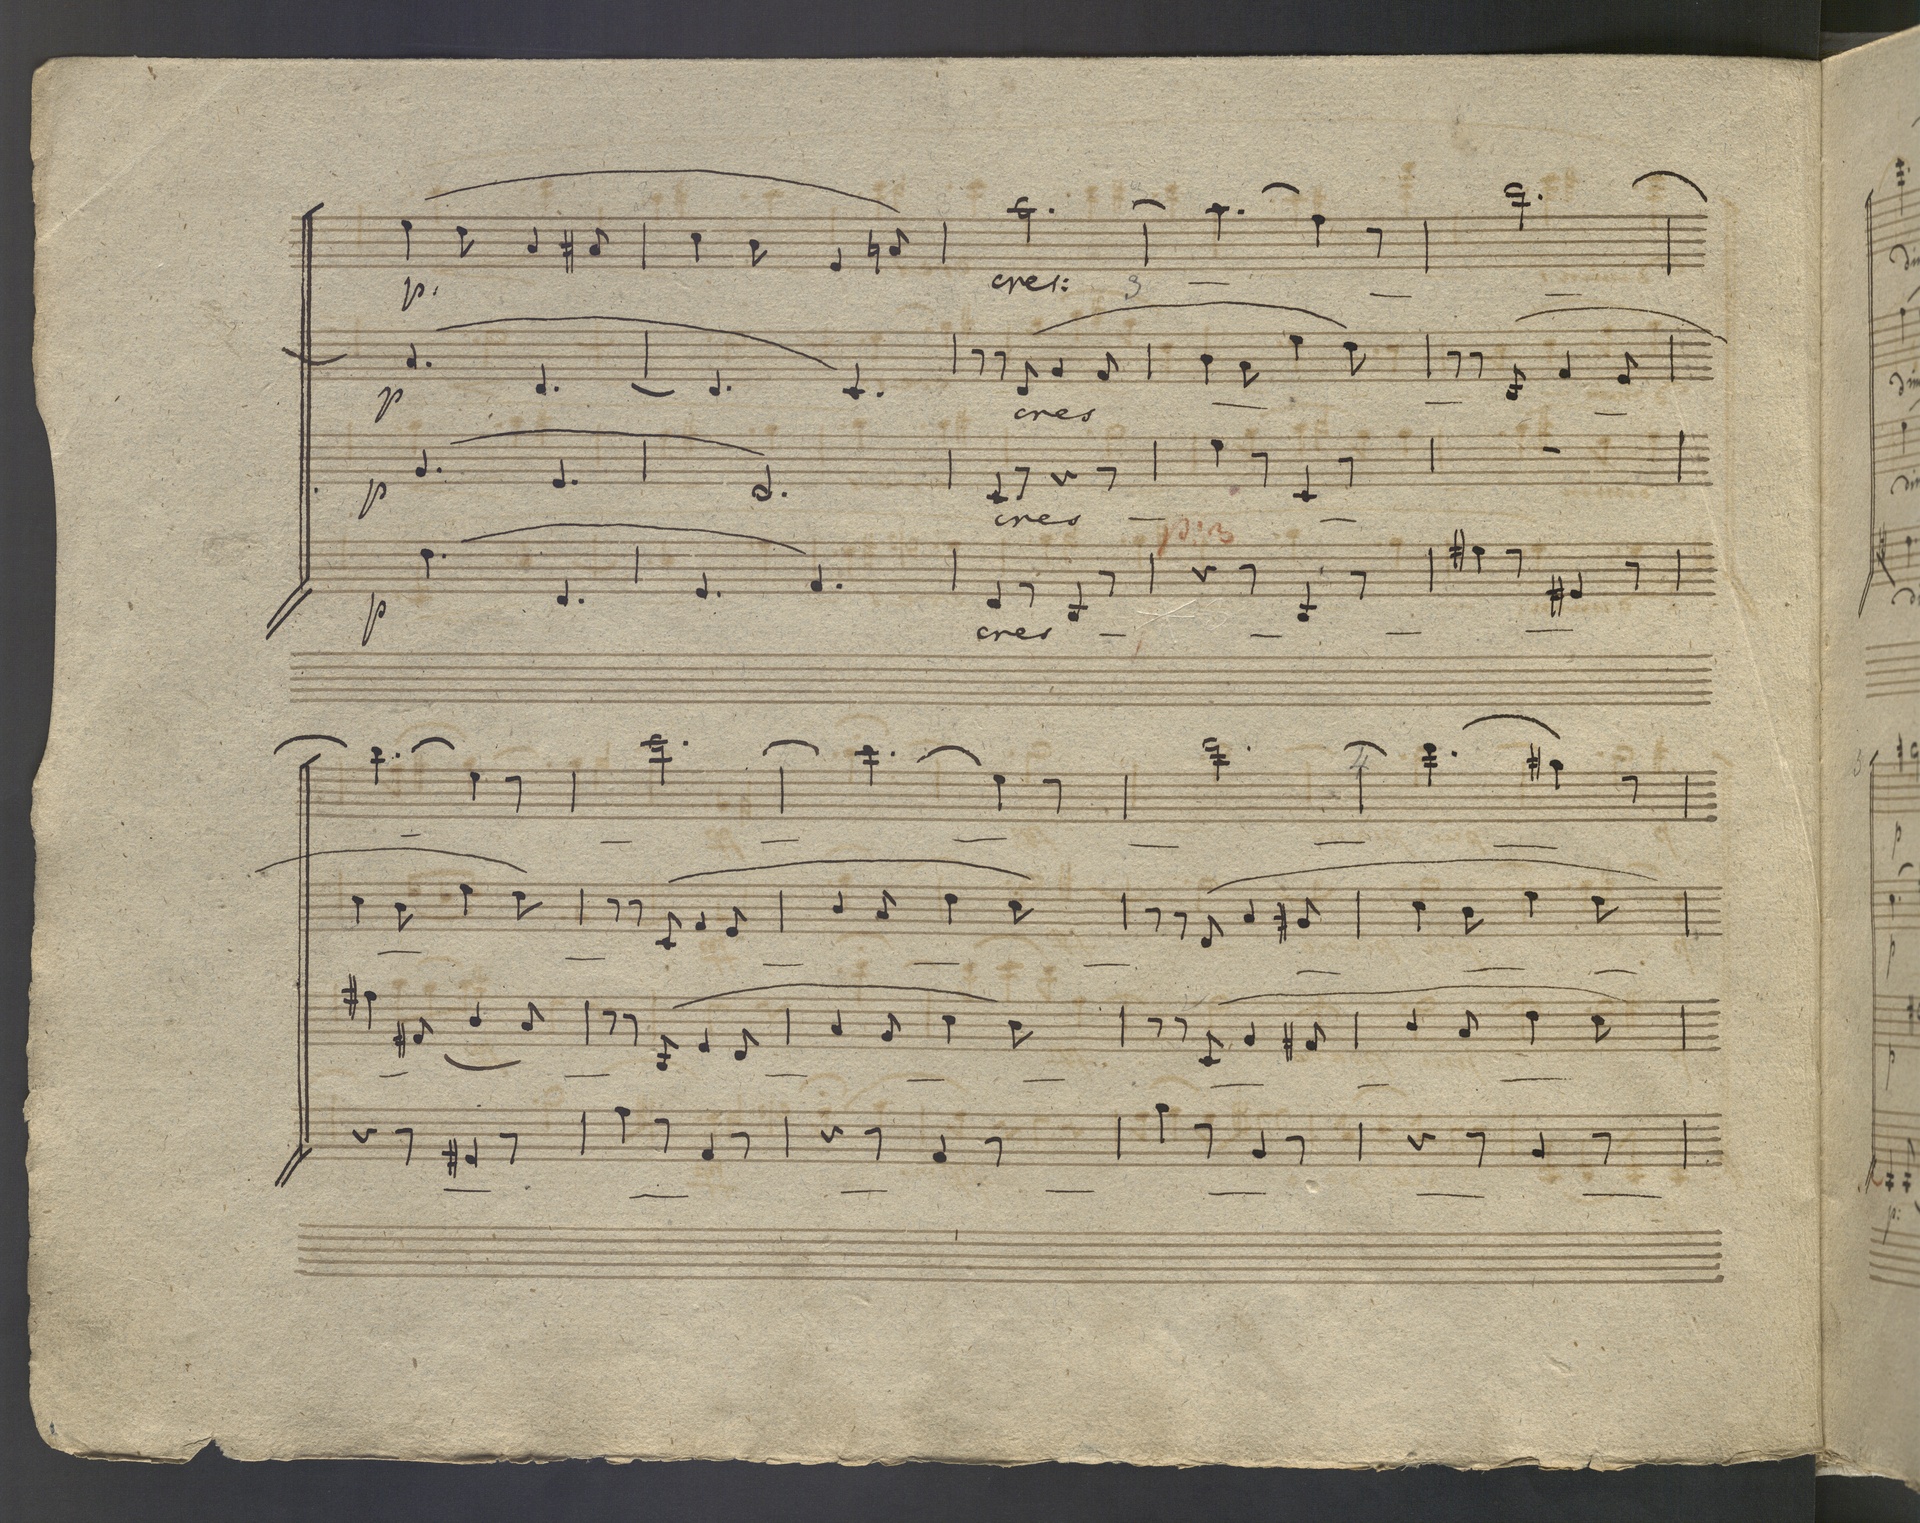 p.
cres: 3
p
cres
p
cres
p
cres
4